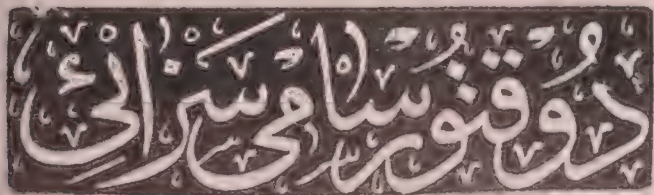 دوقتور سامی سزائی